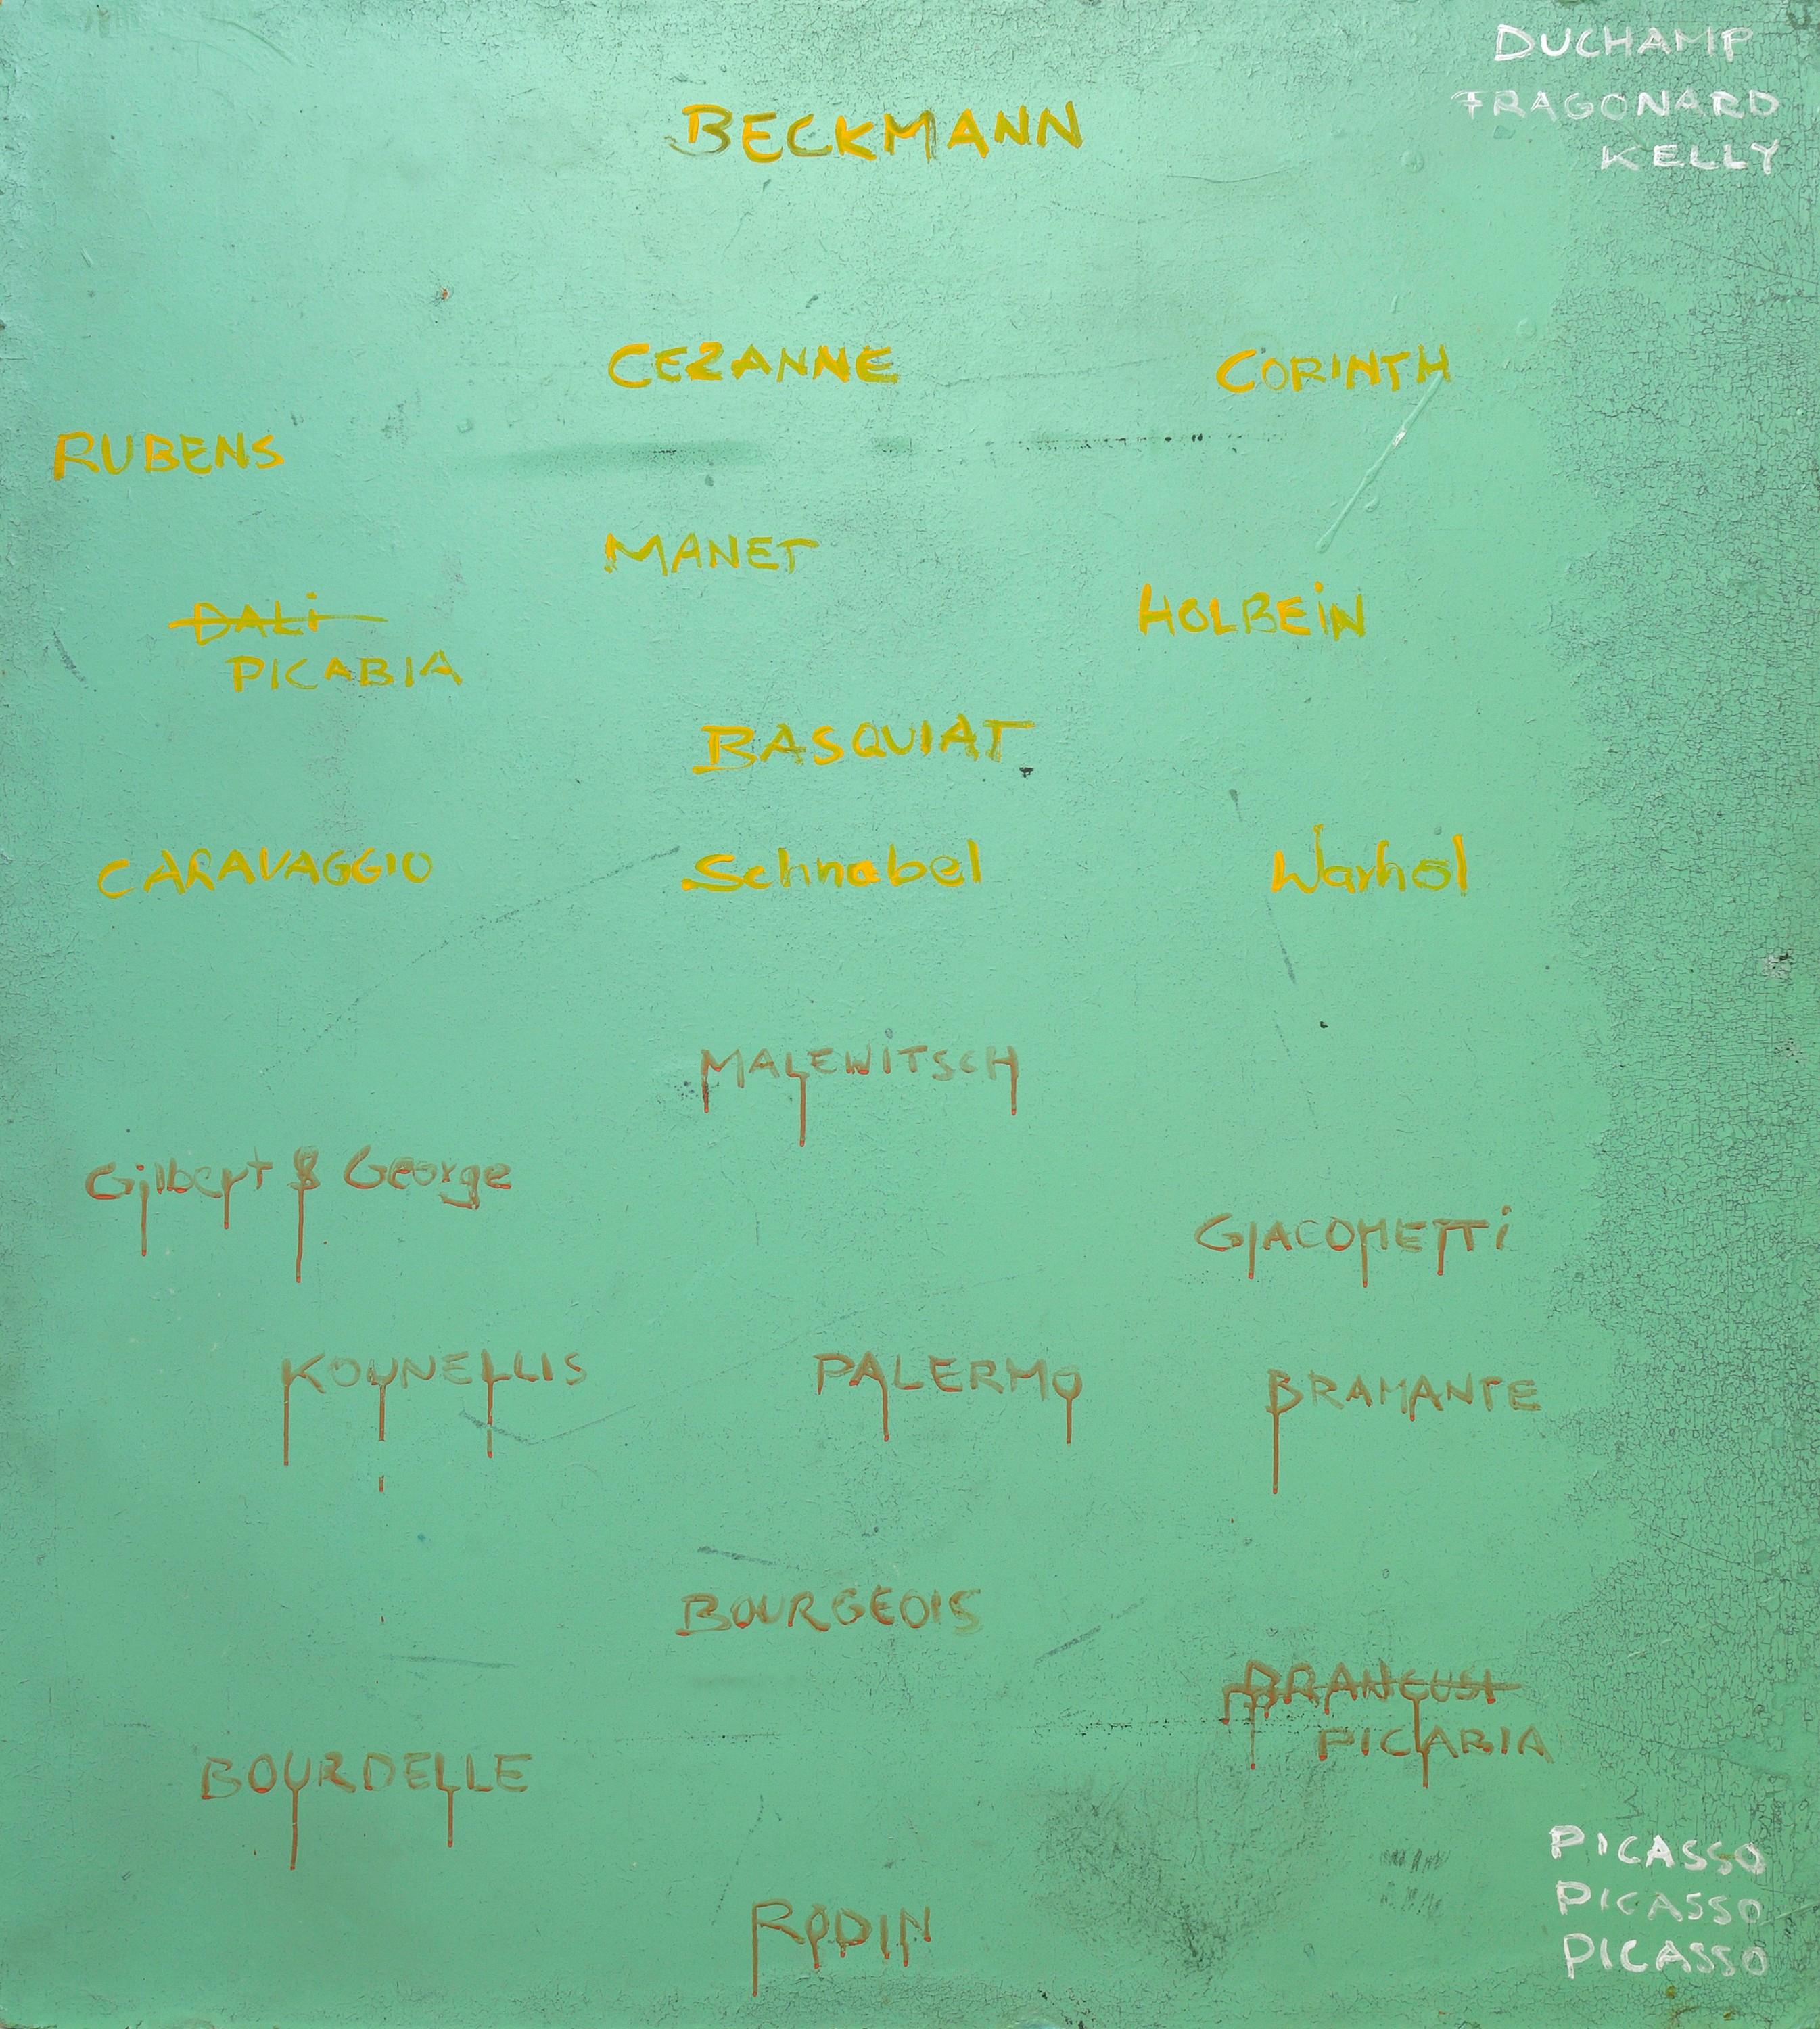 DUCHAMP
FRAGONARD
KELLY
BECKMANN
CEZANNE
CORINTH
RUBENS
MANET
DALi
HOLBEiN
PICABIA
BASQUIAT
CARAVAGGIO
Schnabel
Warhol
MALEWiTSCH
Gilbert & George
GIACOMETTi
KOUNELLIS
PALERMO
BRAMANTE
BOURGEOIS
BRANCUSI
PICABIA
BOURDELLE
PICASSO
PICASSO
PICASSO
RODIN